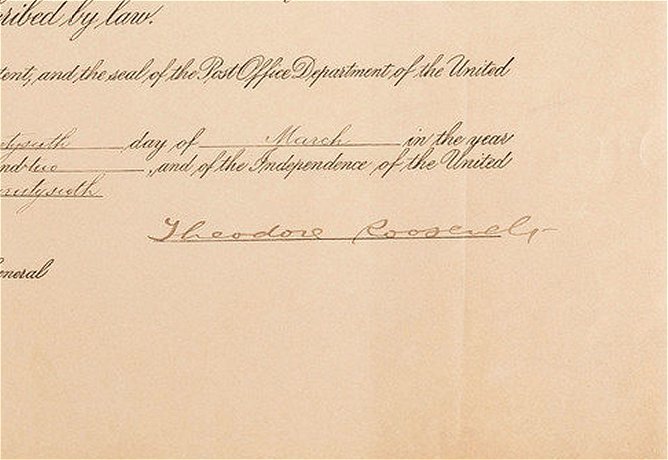 ribed by law.
tent, and the seal of the Post Office Department of the United
tysixth day of March in the year
nd two , and of the Independence of the United
wentysixth
Theodore Roosevelt
eneral